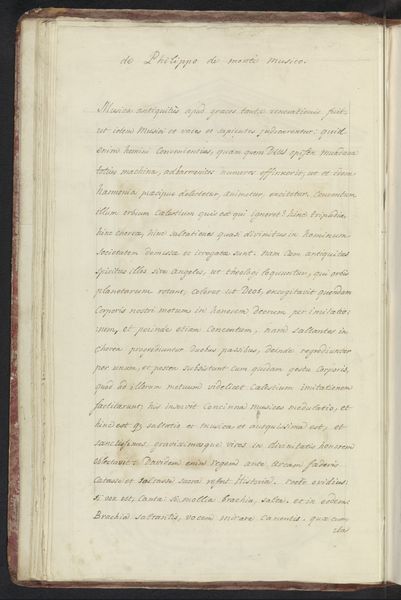 de Philippo de monte musico.
Musica antiquitùs apud graecos tantae venerationis fuit
ut iidem Musici et vates et sapientes judicarentur: quid
enim homini convenientius, quam quem Deus opifex mundana
totius machina, ad harmonicos numeros effinxerit, ut et idem
harmonia praecipue delectetur, animetur, excitetur. Concentum
illum orbium Caelestium quis est qui ignoret? hinc tripudia
hinc chorea, hinc saltationes quasi divinitus in hominum
societatem demissae et irrogatae sunt. nam cum antiquitas
spiritus illos sive angelos, ut theologi loquuntur, qui orbes
planetarum rotant, coleret ut Deos, excogitavit quendam
Corporis nostri motum in honorem deorum per imitatio:
nem, et perinde etiam Concentum, nam saltantes in
chorea progrediuntur duobus passibus, deinde regrediuntur
per unum, et postea subsistunt cum quidam gestu Corporis,
quod ad illorum motuum videlicet Caelestium imitationem
factitarunt; his inservit Concinna musices modulatio, et
hinc est q; saltatio et musica et antiquissima est, et
sanctissimos gravissimosque viros in divinitatis honorem
oblectavit: Davidem enim regem ante arcam faederis
Cantasse et saltasse sacra refert Historia. recte ovidius:
si vox est, Canta: si mollia Brachia, salta. et in eodem:
Brachia saltantis, vocem mirare Canentis. quae cum
ita